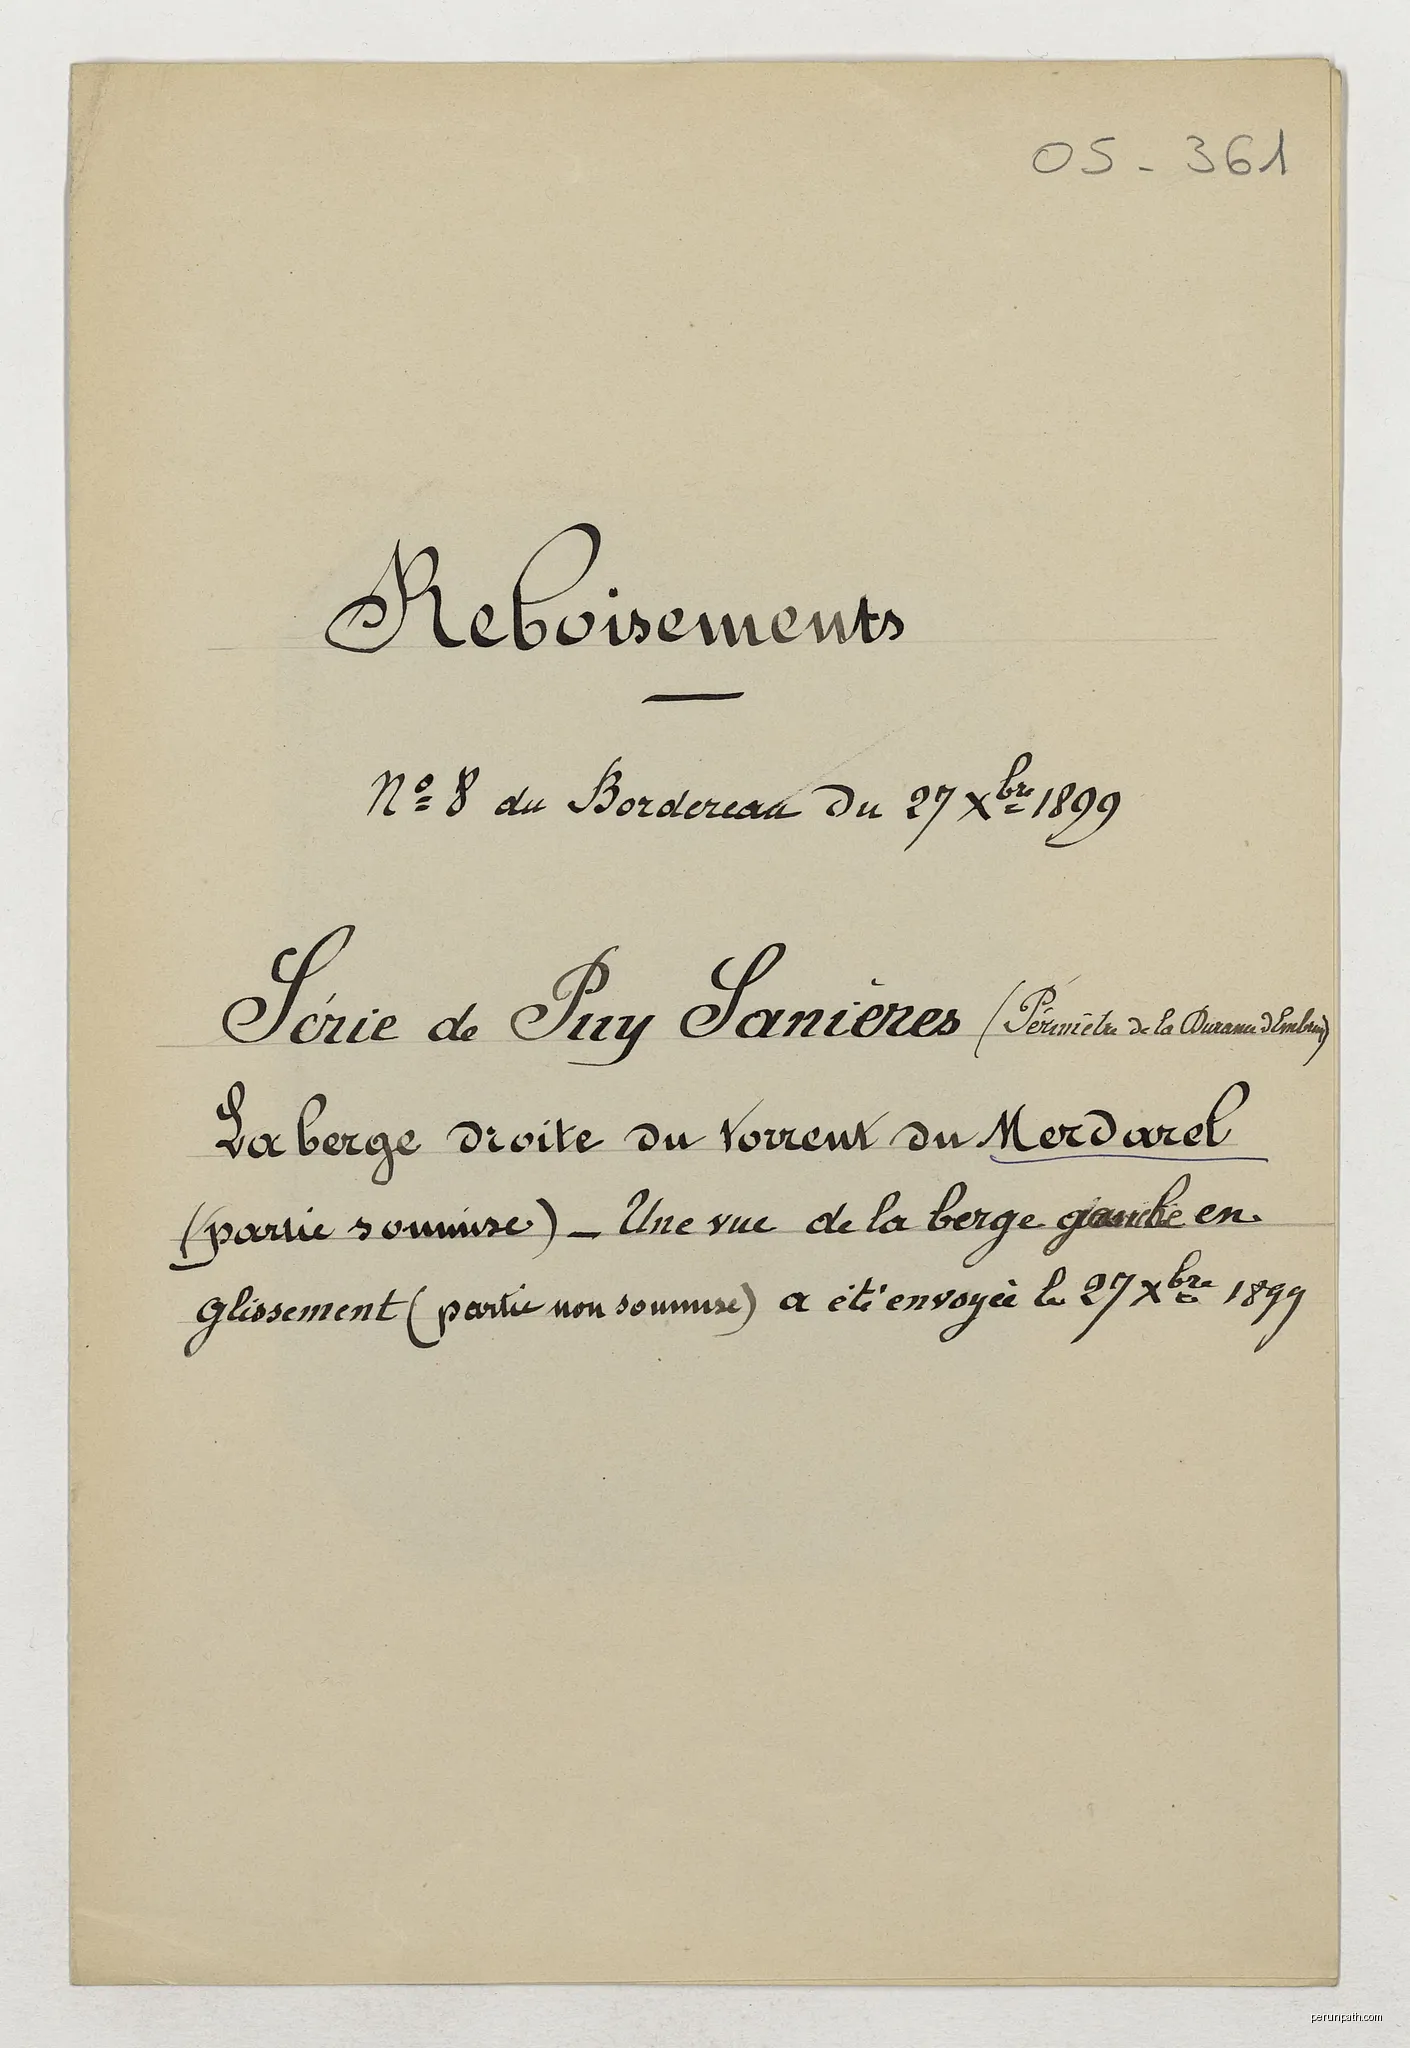 05 - 361
Reboisements
Nº 8 du Bordereau du 27 Xbre 1899
Série de Puy Sanières (Périmètre de la Durance d'Embrun)
La berge droite du torrent du Merdarel
(partie soumise) – Une vue de la berge gauche en
glissement (partie non soumise) a été envoyée le 27 Xbre 1899
perunpath.com